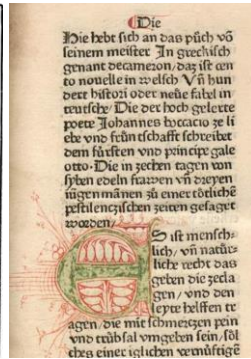 Die
Hie hebt sich an das půch võ
seinem meister In greckisch
genant decameron/daz ist cen
to nouelle in welsch Vñ hun
dert histori oder neüe fabel in
teutsche/Die der hoch gelerte
poete Johannes boccacio ze li
ebe vnd früntschafft schreibet
dem fürsten vnd principe gale
otto. Die in zechen tagen von
syben edeln frawen vñ dreyen
iungen mãnen zů einer tötliche
pestilenczischen zeiten gesaget
worden/
ES ist mensch⸗
lich/ vñ natür⸗
liche recht das
geben die zecla
gen/ vnd den
leyte helffen tr
agen/ die mit schmerczen pein
vnd trübsal vmgeben sein/sol
ches einer iglichen vernüftigē